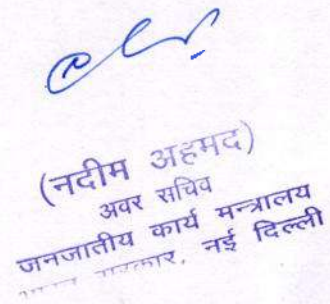 (नदीम अहमद)
अवर सचिव
जनजातीय कार्य मन्त्रालय
सरकार, नई दिल्ली